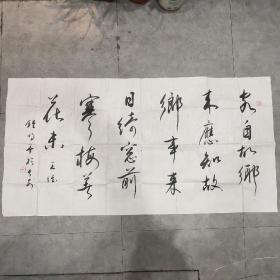 君自故鄉
来應知故
鄉事来
日綺窓前
寒梅着
花未 王維